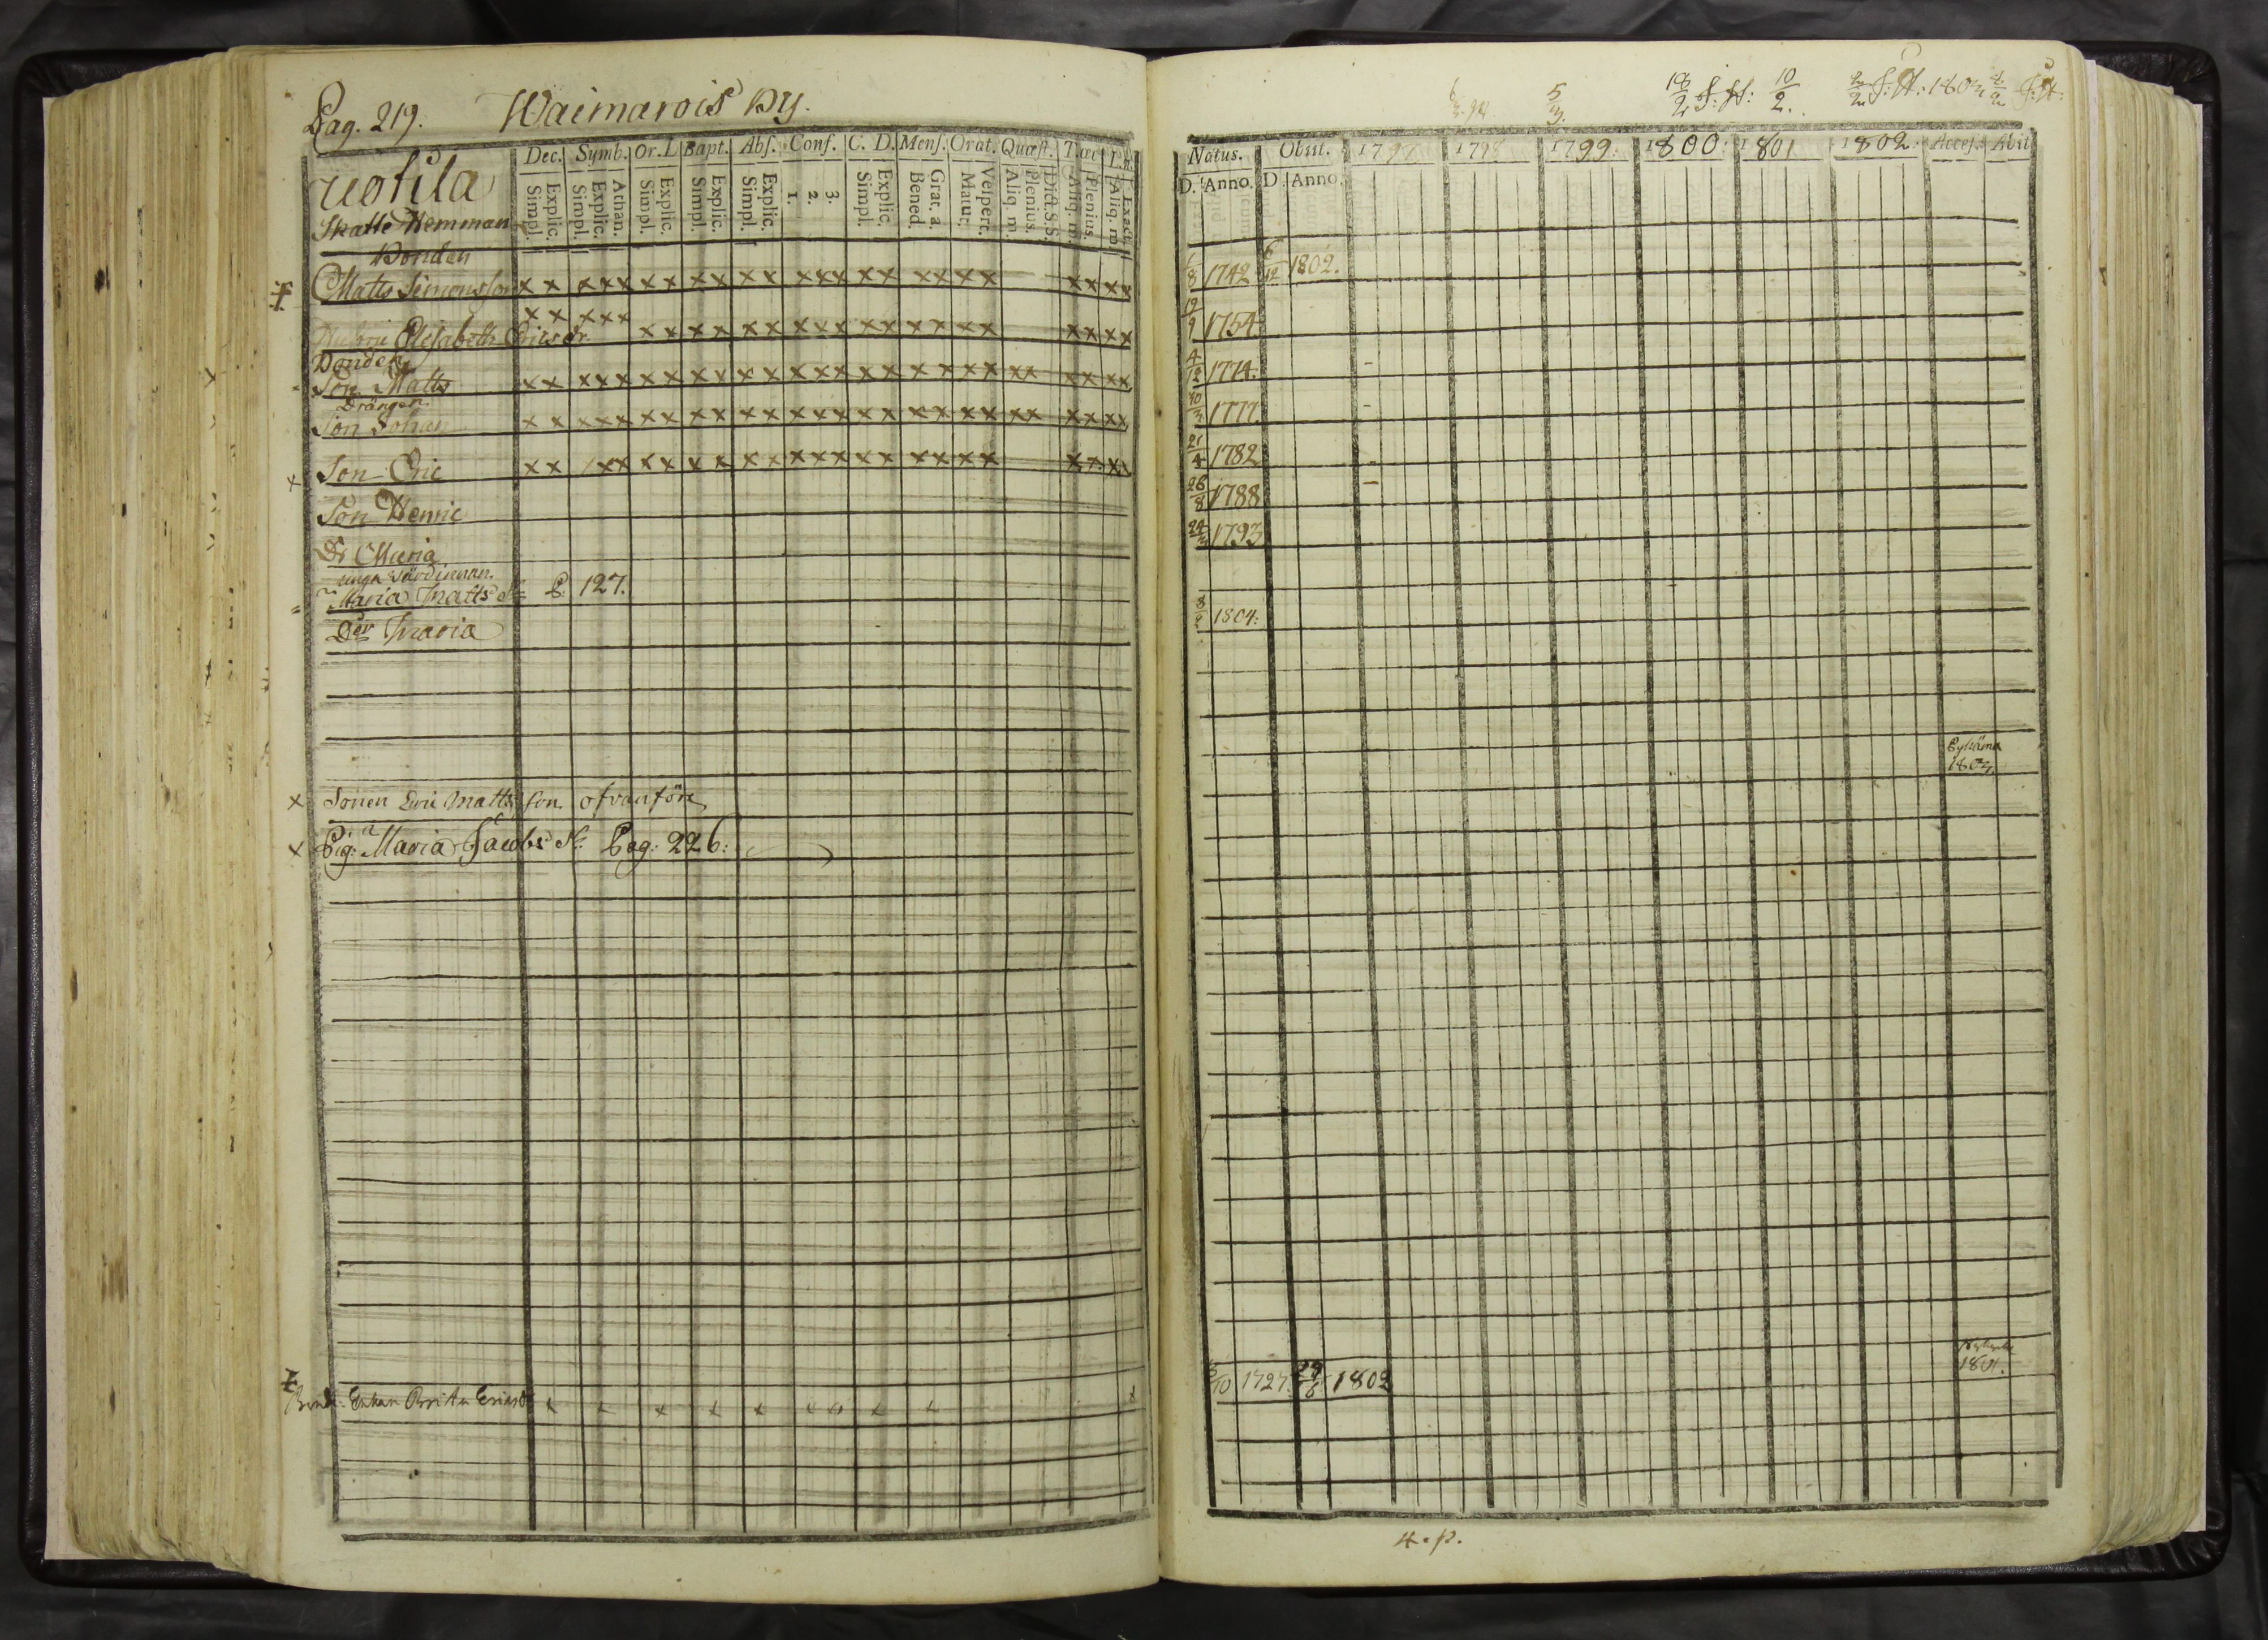 Pag. 219. Waimarois By.
Dec. Symb. Or. D Bapt. Abs. Conf. C. D. Mens. Orat. Quæst. T. œc
Explic. Simpl. Athan. Explic. Simpl. Explic. Simpl. Explic. Simpl. Explic. Simpl. 3. 2. 1. Explic. Simpl. Grat. a. Bened. Vespert. Matut. Dict. S.S. Plenius. Aliq. m. Plenius. Aliq. m. Exact. Aliq. m.
Skatte Hemman
Bonden
Matts Simonsson x x x x x x x x x x x x x x x x x x x x x x x x
x x x x x
Hustru Elisabeth Ericsdr x x x x x x x x x x x x x x x x x x x
Bonden
Son Matts x x x x x x x x x x x x x x x x x x x x x x x x x x
Drängen
Son Johan x x x x x x x x x x x x x x x x x x x x x x x x x x
x Son Eric x x x x x x x x x x x x x x x x x x x x x x x
Son Henric
Dr Maria
unga värdinnan.
= Maria Matts dr P. 127.
Dr Maria
x Sonen Eric Matts son ofvanföre
x Pig: Maria Jacobs dr Pag: 226:
Enkan Brita Ericsdr x x x x x x x x x x
5/3. 18/2 S: H: 10/2. S: H: 1804 S: H:
Natus. Obiit. 1797 1798 1799: 1800: 1801 1802. Acces. Abit
D. Anno. D. Anno.
1742 6/12 1802.
19/9 1754
4/12 1774.
1777.
21/4 1782
26/8 1788
24/3 1793
8/2 1804:
1804.
1801.
5/10 1727. 24/6 1802
4. p.